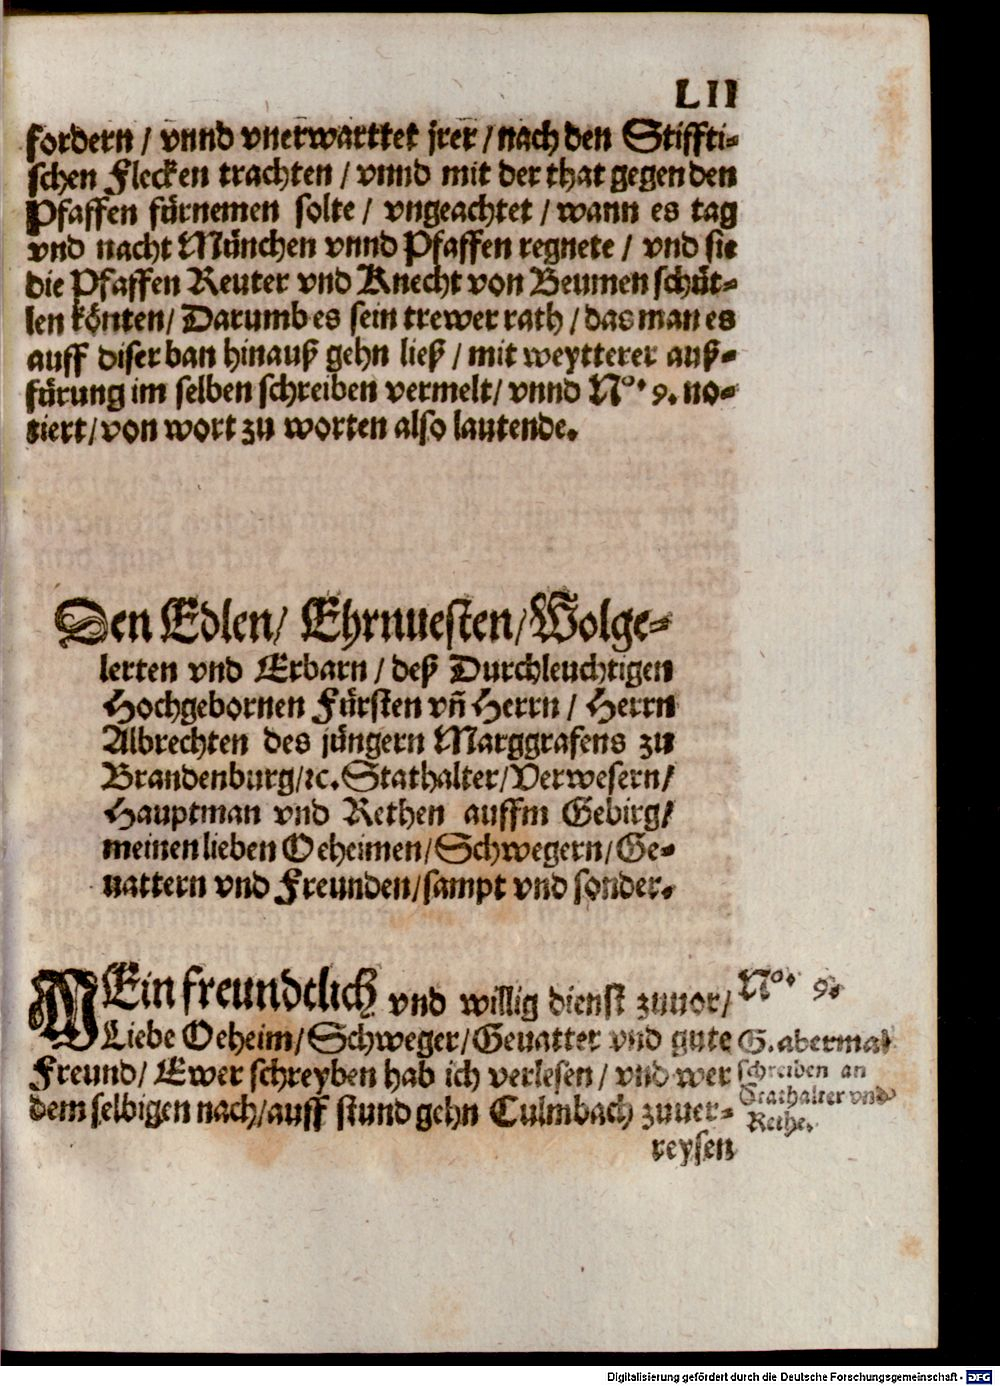 LII
fordern / vnnd vnerwarttet jrer / nach den Stiffti-
schen Flecken trachten / vnnd mit der that gegen den
Pfaffen fürnemen solte / vngeachtet / wann es tag
vnd nacht München vnnd Pfaffen regnete / vnd sie
die Pfaffen Reuter vnd Knecht von Beumen schüt-
len könten / Darumb es sein trewer rath / das man es
auff diser ban hinauß gehn ließ / mit weytterer auß-
fürung im selben schreiben vermelt / vnnd No. 9. no-
tiert / von wort zu worten also lautende.
Den Edlen / Ehrnuesten / Wolge-
lerten vnd Erbarn / deß Durchleuchtigen
Hochgebornen Fürsten vñ Herrn / Herrn
Albrechten des jüngern Marggrafens zu
Brandenburg / ꝛc. Stathalter / Verwesern /
Hauptman vnd Rethen auffm Gebirg /
meinen lieben Oeheimen / Schwegern / Ge-
uattern vnd Freunden / sampt vnd sonder.
MEin freundtlich vnd willig dienst zuuor /
Liebe Oeheim / Schweger / Geuatter vnd gute
Freund / Ewer schreyben hab ich verlesen / vnd wer
dem selbigen nach / auff stund gehn Culmbach zuuer-
reysen
No. 9.
G. abermal
schreiben an
Stathalter vnd
Rethe.
Digitalisierung gefördert durch die Deutsche Forschungsgemeinschaft - DFG